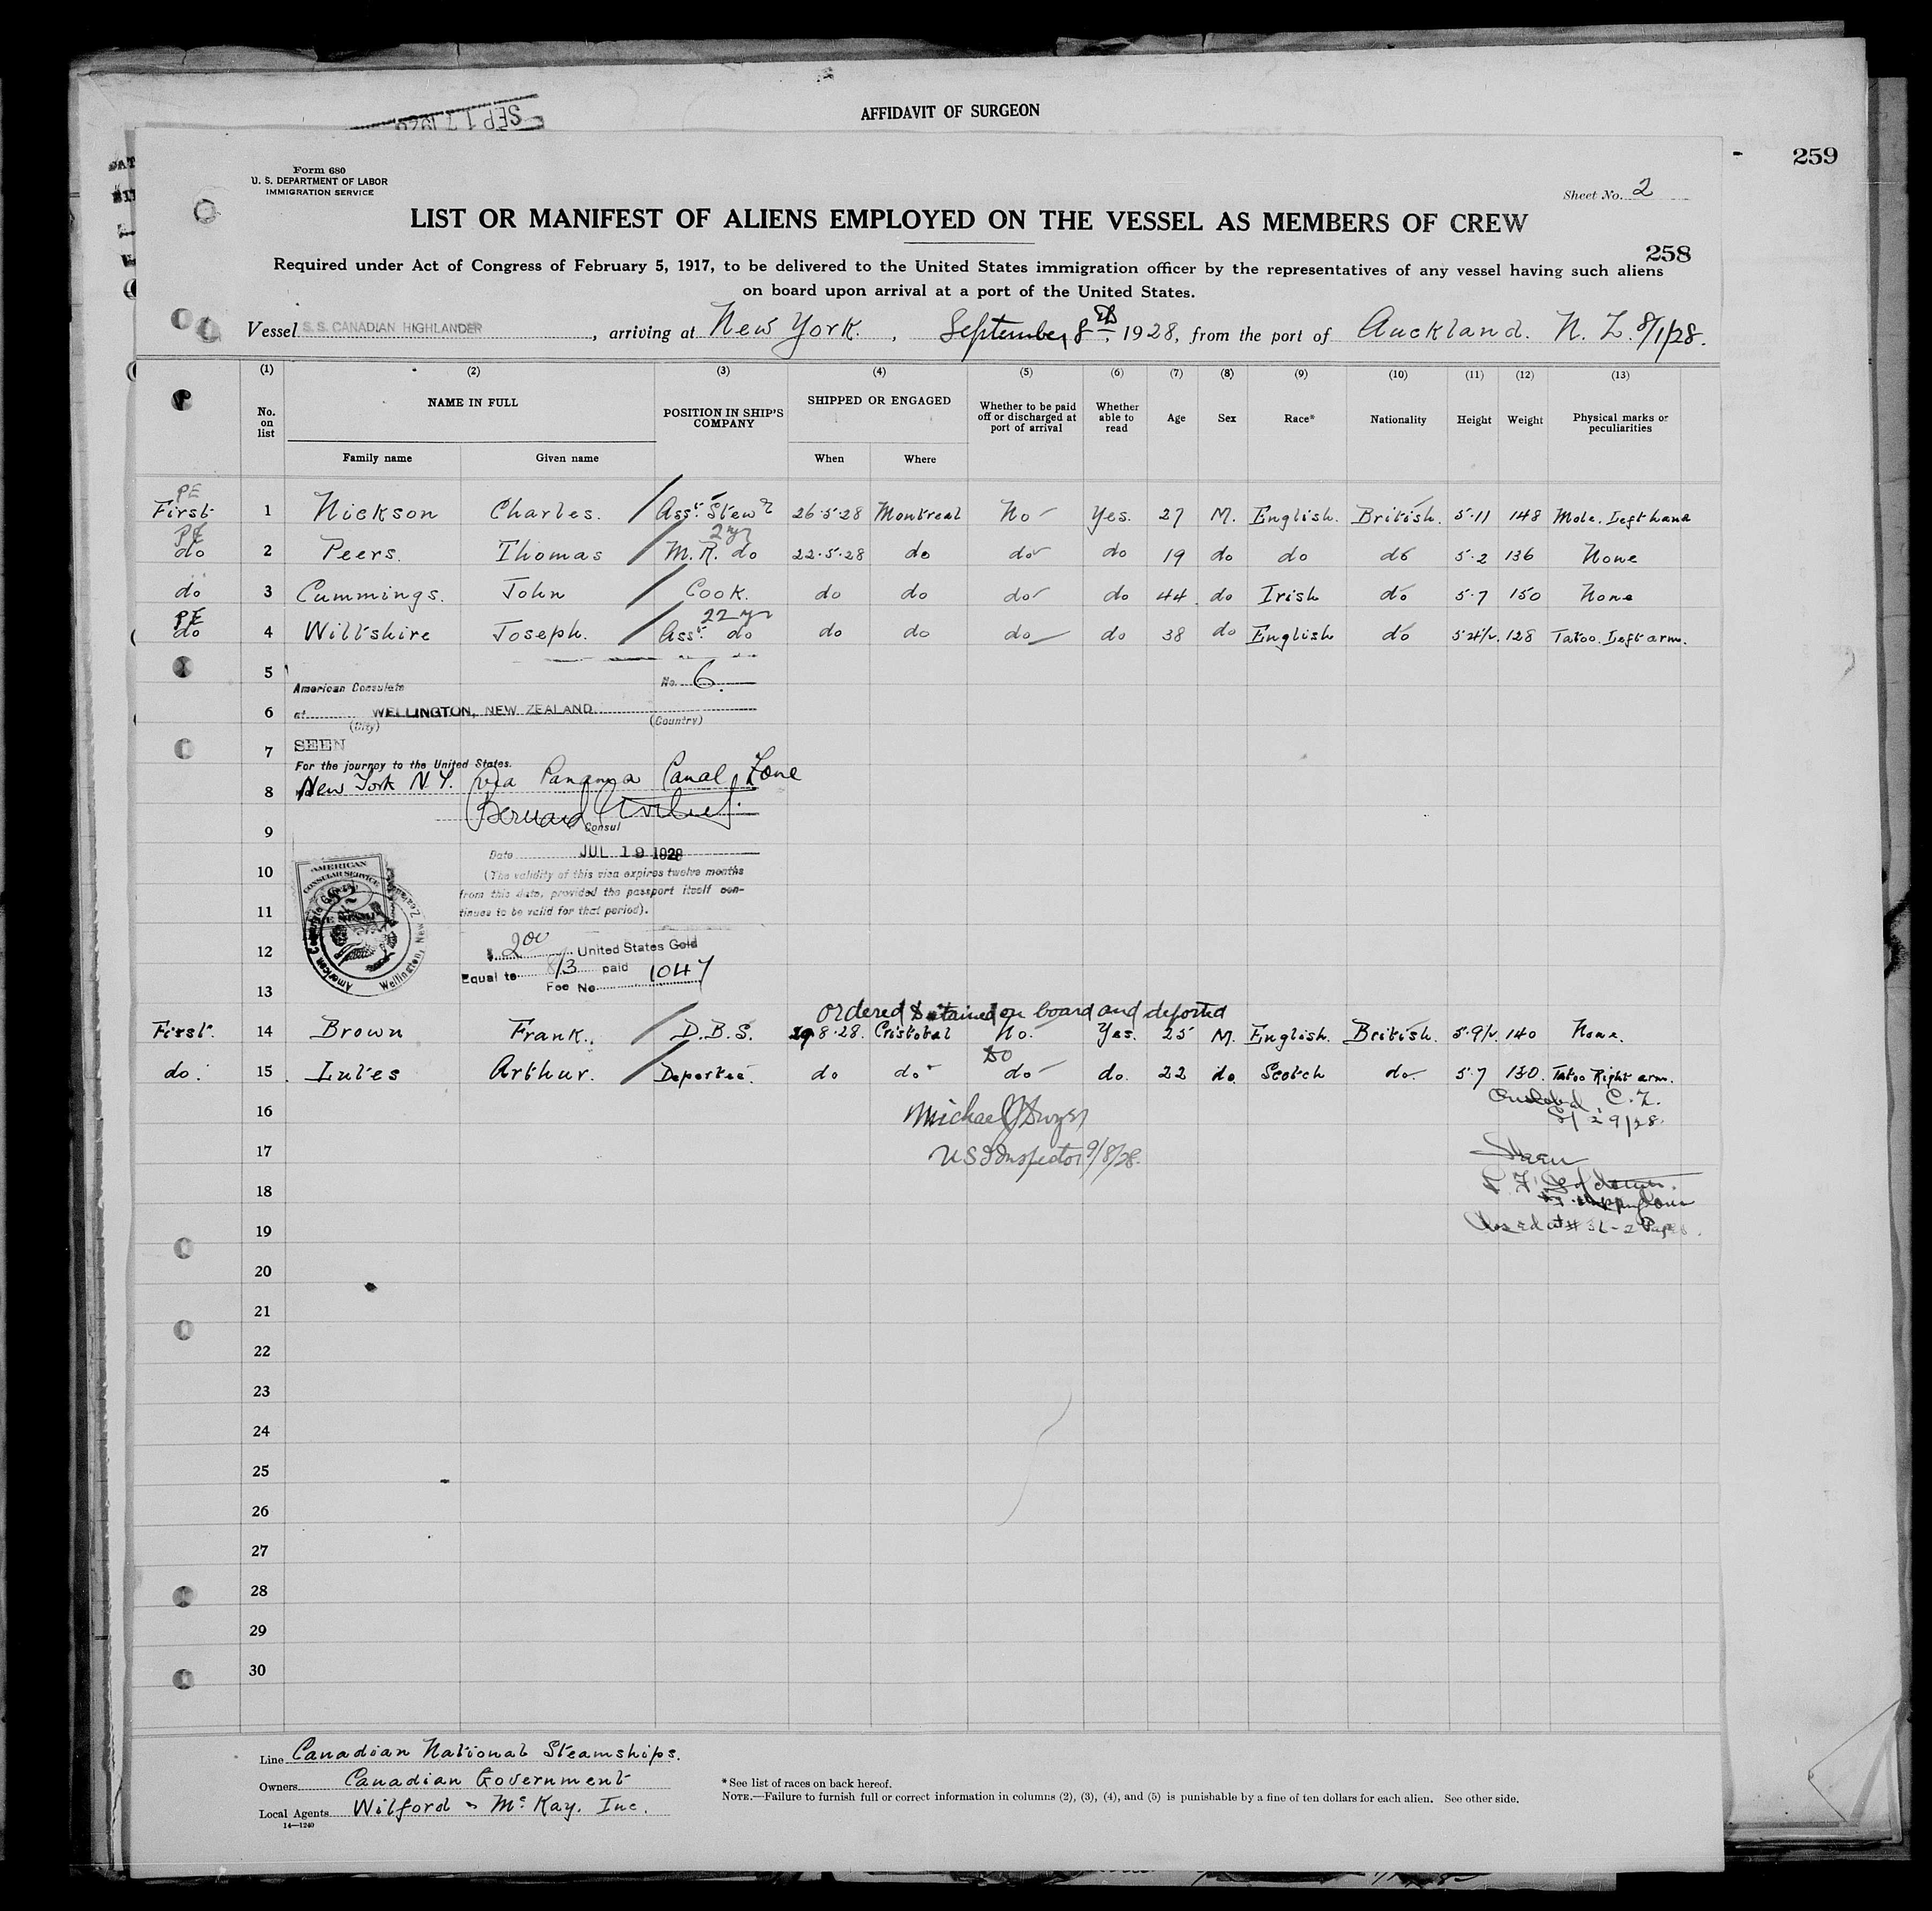 SEP 17 1928
AFFIDAVIT OF SURGEON
259
Form 680
U. S. DEPARTMENT OF LABOR
IMMIGRATION SERVICE
Sheet No. 2
LIST OR MANIFEST OF ALIENS EMPLOYED ON THE VESSEL AS MEMBERS OF CREW
258
Required under Act of Congress of February 5, 1917, to be delivered to the United States immigration officer by the representatives of any vessel having such aliens
on board upon arrival at a port of the United States.
Vessel S. S. CANADIAN HIGHLANDER, arriving at New York. , September 8th, 1928, from the port of Auckland. N. Z. 8/1/28.
(1) (2) (3) (4) (5) (6) (7) (8) (9) (10) (11) (12) (13)
No. on list NAME IN FULL Family name Given name POSITION IN SHIP'S COMPANY SHIPPED OR ENGAGED When Where Whether to be paid off or discharged at port of arrival Whether able to read Age Sex Race* Nationality Height Weight Physical marks or peculiarities
PE
First 1 Nickson Charles. Asst. Stewd 26.5.28 Montreal No Yes. 27 M. English. British. 5.11 148 Mole. Left hand
PE 2 yr
do 2 Peers. Thomas M.R. do 22.5.28 do do do 19 do do do 5.2 136 None
do 3 Cummings. John Cook. do do do do 44 do Irish do 5.7 150 None
PE 22 yr
do 4 Wiltshire Joseph. Asst. do do do do do 38 do English do 5 4 1/2. 128 Tatoo. Left arm.
5
American Consulate No. 6.
6 at WELLINGTON, NEW ZEALAND.
(City) (Country)
7 SEEN
For the journey to the United States.
8 New York N.Y. via Panama Canal Zone
Bernard
9 Consul
Date JUL 19 1928
10 (The validity of this visa expires twelve months
from this date, provided the passport itself con-
11 tinues to be valid for that period).
AMERICAN
CONSULAR SERVICE
American Consulate General
Wellington, New Zealand
12 $ 2 00 United States Gold
Equal to 8/3 paid 1047
Fee No
13
ordered detained on board and deported
First. 14 Brown Frank. D.B.S. 29 8.28. Cristobal No. Yes. 25 M. English. British. 5.9 1/2. 140 None.
do
do. 15 Lutes Arthur. Deportee. do do do do. 22 do. Scotch do. 5.7 130. Tatoo Right arm.
16 Michael J Dwyer Cristobal, C.Z.
8/29/28.
17 US Inspector 9/8/28. Seen
18
19 Closed at # 36 - 2 Pages.
20
21
22
23
24
25
26
27
28
29
30
Line Canadian National Steamships.
Owners Canadian Government
Local Agents Wilford & McKay. Inc.
14—1240
* See list of races on back hereof.
NOTE.—Failure to furnish full or correct information in columns (2), (3), (4), and (5) is punishable by a fine of ten dollars for each alien. See other side.